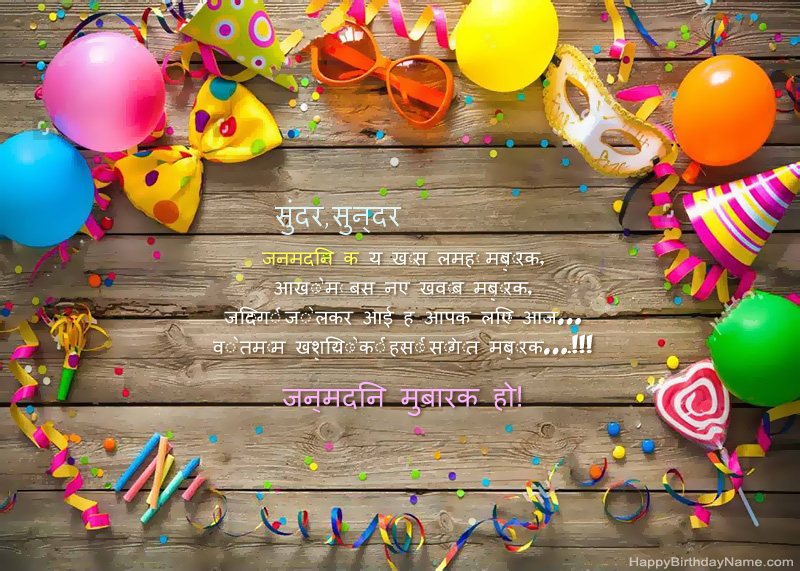 सुंदर,सुन्दर
जनमदिन क य खास लमह मबारक,
आखोम बस नए खवाब मबारक,
जदिगी जो लकर आई ह आपक लिए आज...
वो तमाम खशियो की हसी सोगात मबारक...!!!
जन्मदिन मुबारक हो!
HappyBirthdayName.com